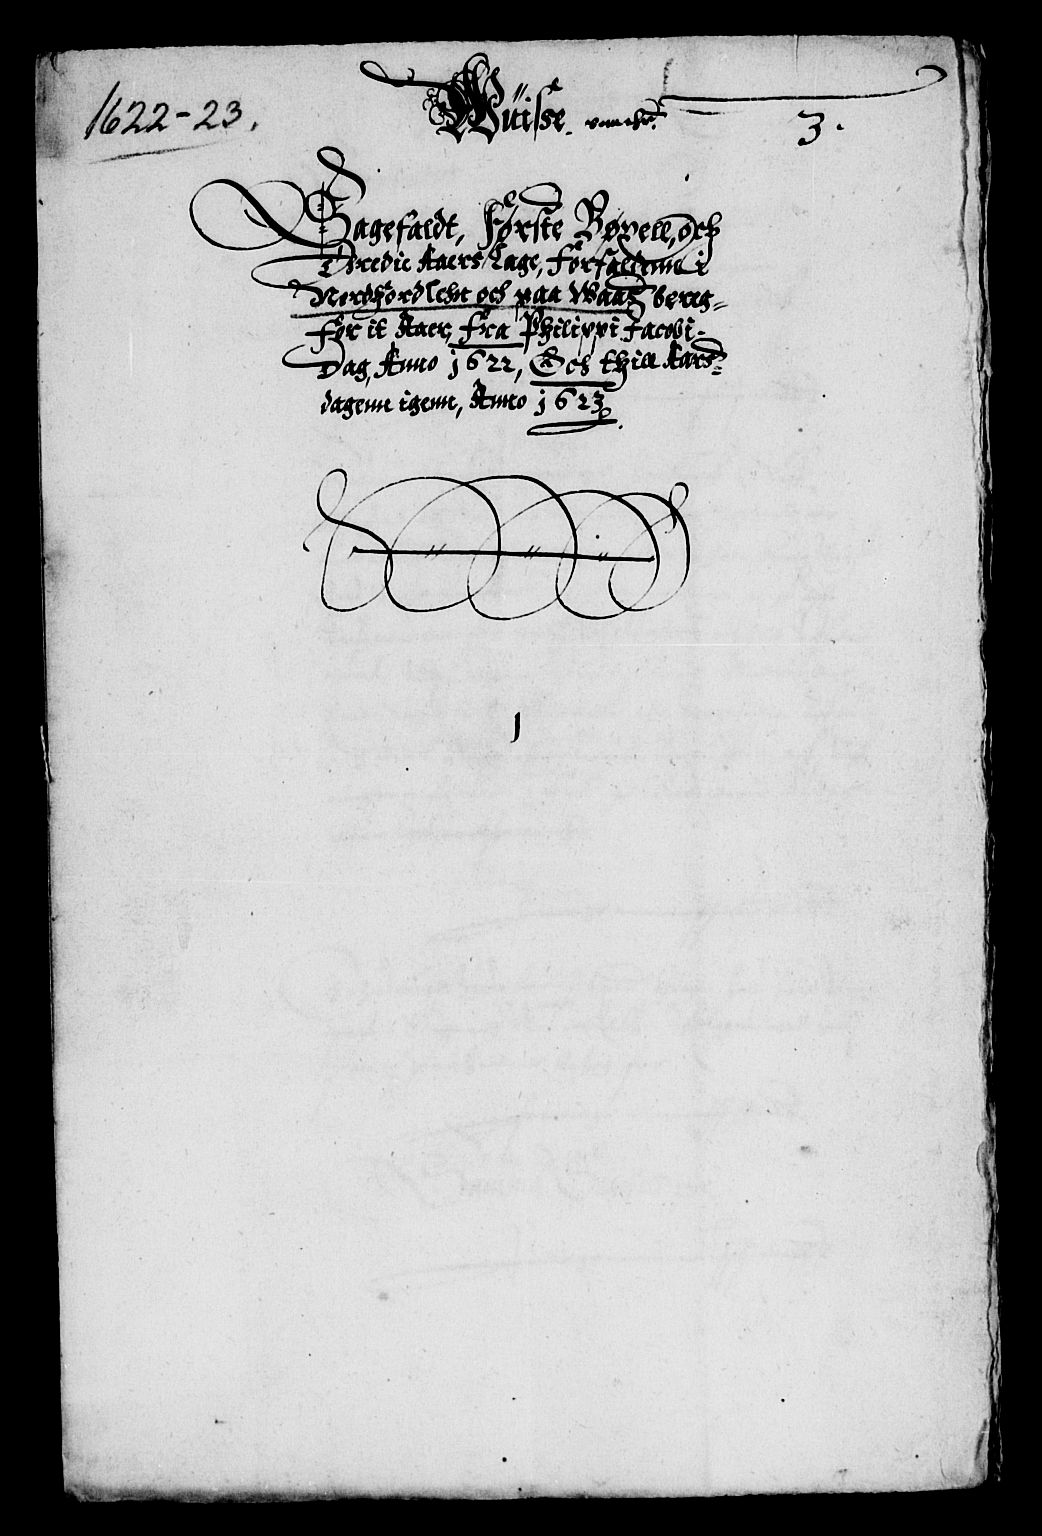 1622-23.
Wüisse
3.
Sagefaldt, Første Bøxell, och
Tredie Aaers Tage, Forfaldenn i
Nordfiord lehn och paa Waagsbereg-
For it Aaer, Fra Philippi Jacobi
Dag, Anno 1622, Och thill Aars-
dagenn igenn, Anno 1623
1